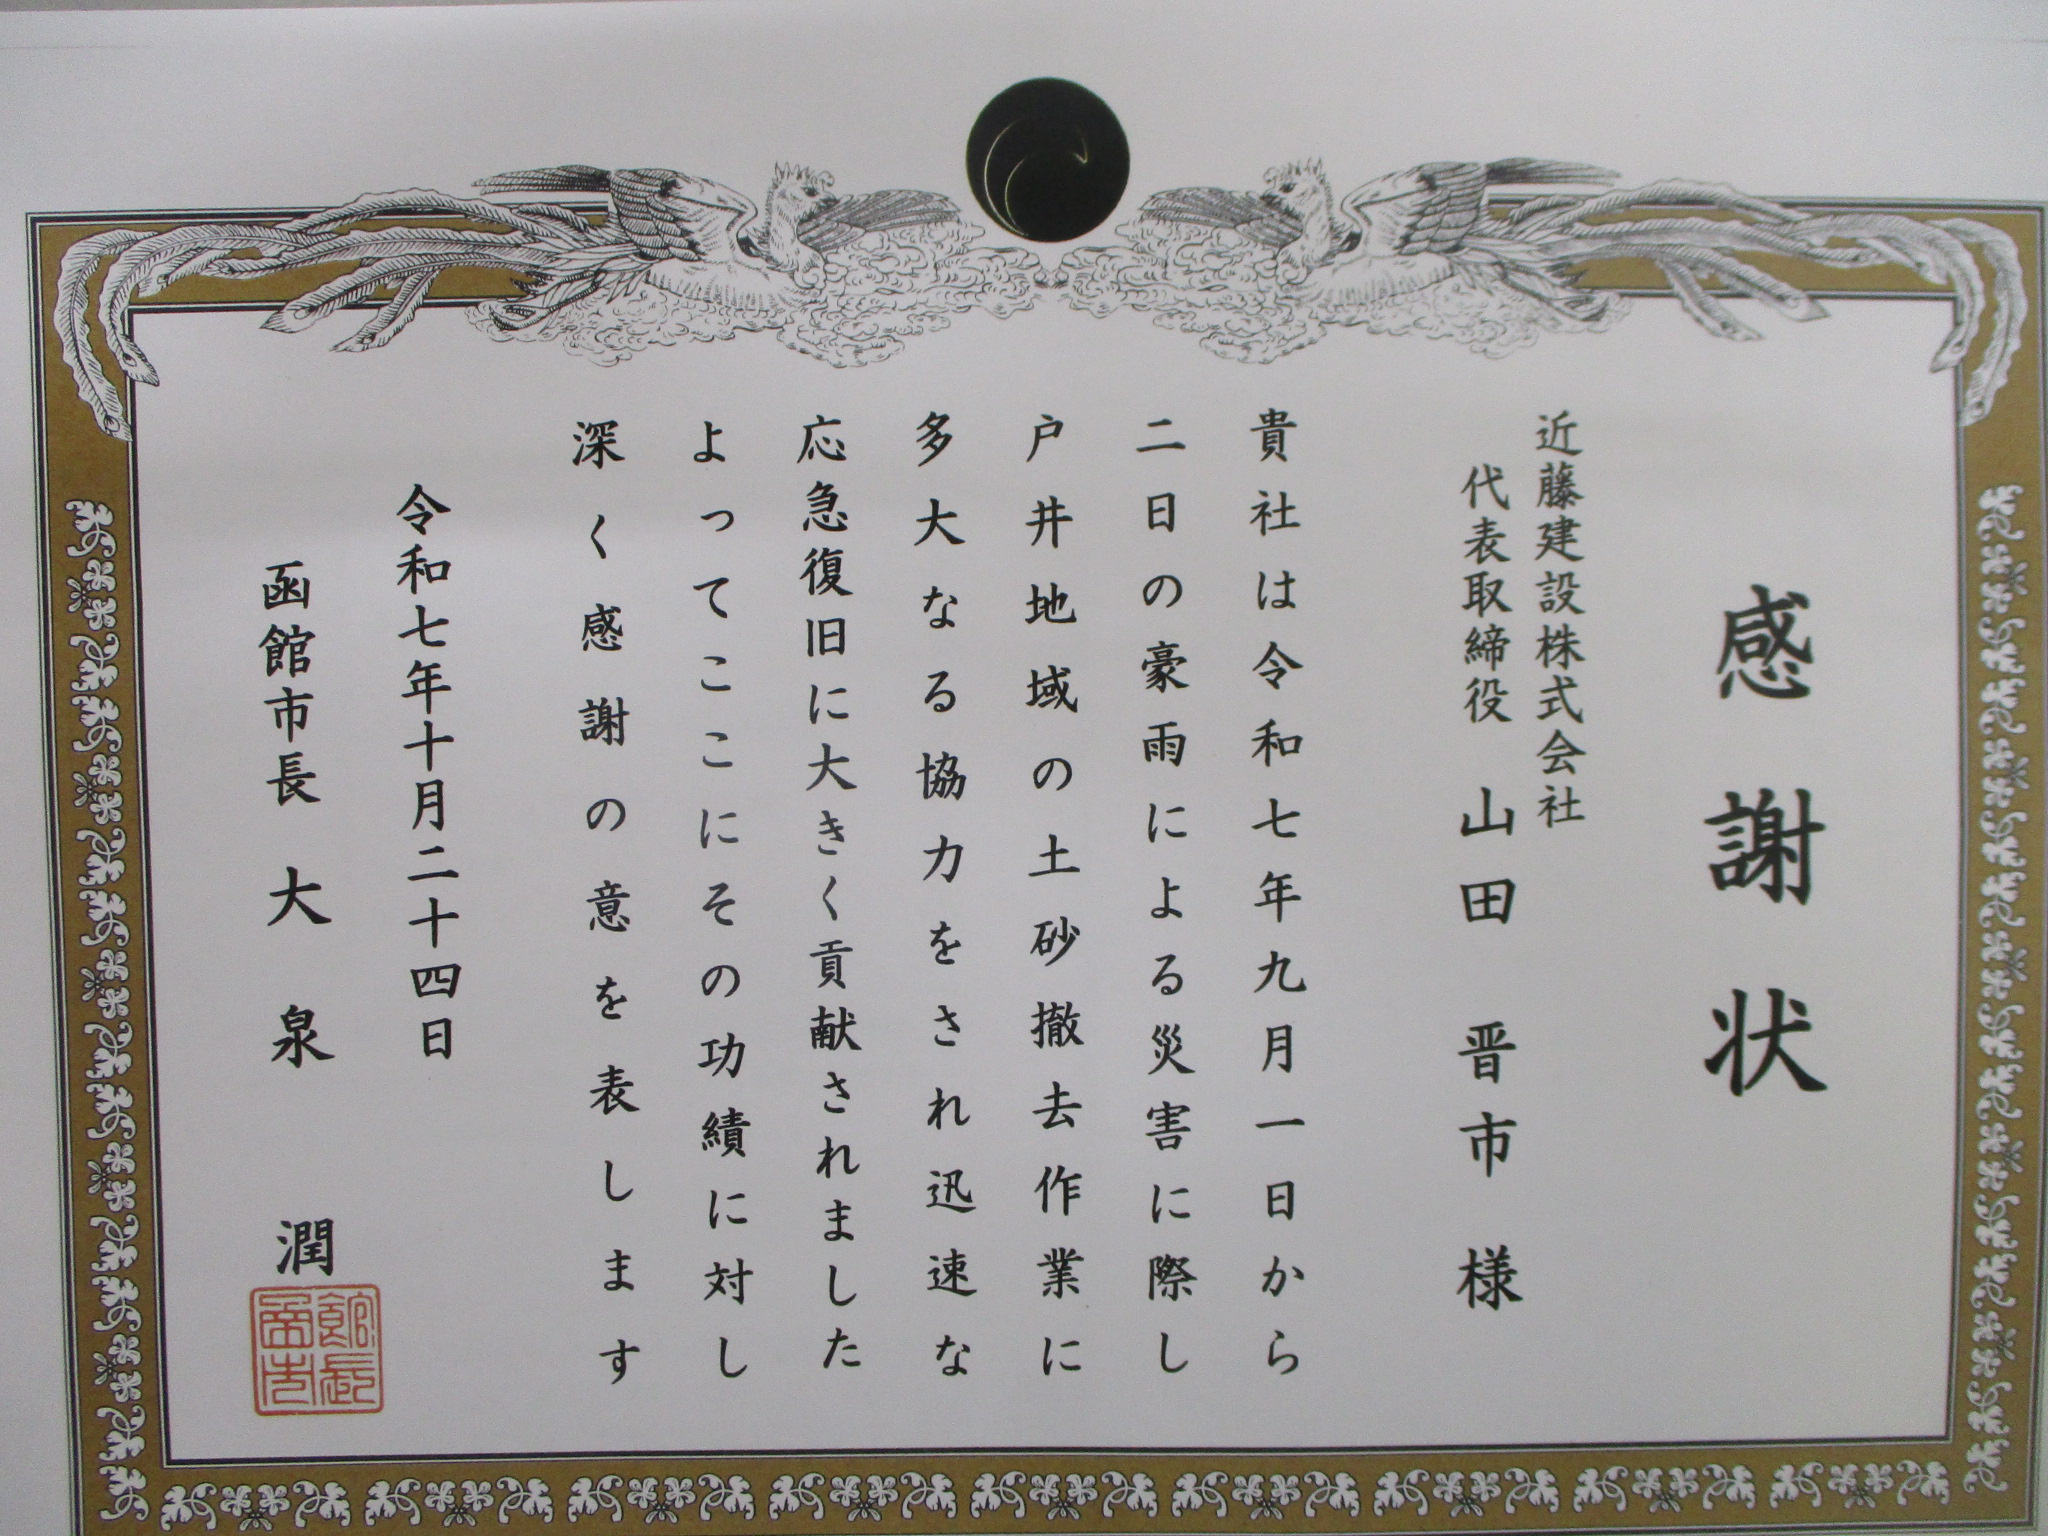 感謝状
近藤建設株式会社
代表取締役 山田 晋市 様
貴社は令和七年九月一日から
二日の豪雨による災害に際し
戸井地域の土砂撤去作業に
多大なる協力をされ迅速な
応急復旧に大きく貢献されました
よってここにその功績に対し
深く感謝の意を表します
令和七年十月二十四日
函館市長 大泉 潤